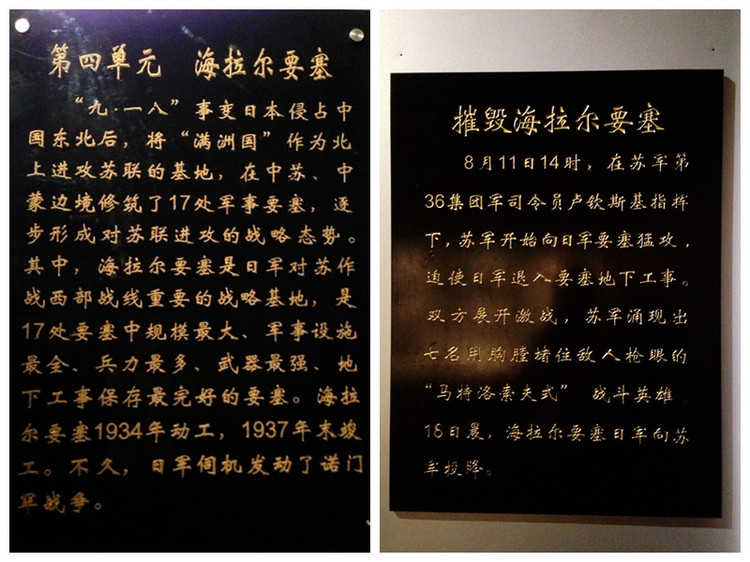 第四单元 海拉尔要塞
“九·一八”事变日本侵占中
国东北后，将“满洲国”作为北
上进攻苏联的基地，在中苏、中
蒙边境修筑了17处军事要塞，逐
步形成对苏联进攻的战略态势。
其中，海拉尔要塞是日军对苏作
战西部战线重要的战略基地，是
17处要塞中规模最大、军事设施
最全、兵力最多、武器最强、地
下工事保存最完好的要塞。海拉
尔要塞1934年动工，1937年末竣
工。不久，日军伺机发动了诺门
罕战争。
摧毁海拉尔要塞
8月11日14时，在苏军第
36集团军司令员卢钦斯基指挥
下，苏军开始向日军要塞猛攻，
迫使日军退入要塞地下工事。
双方展开激战，苏军涌现出
七名用胸膛堵住敌人枪眼的
“马特洛索夫式” 战斗英雄
18日晨，海拉尔要塞日军向苏
军投降。